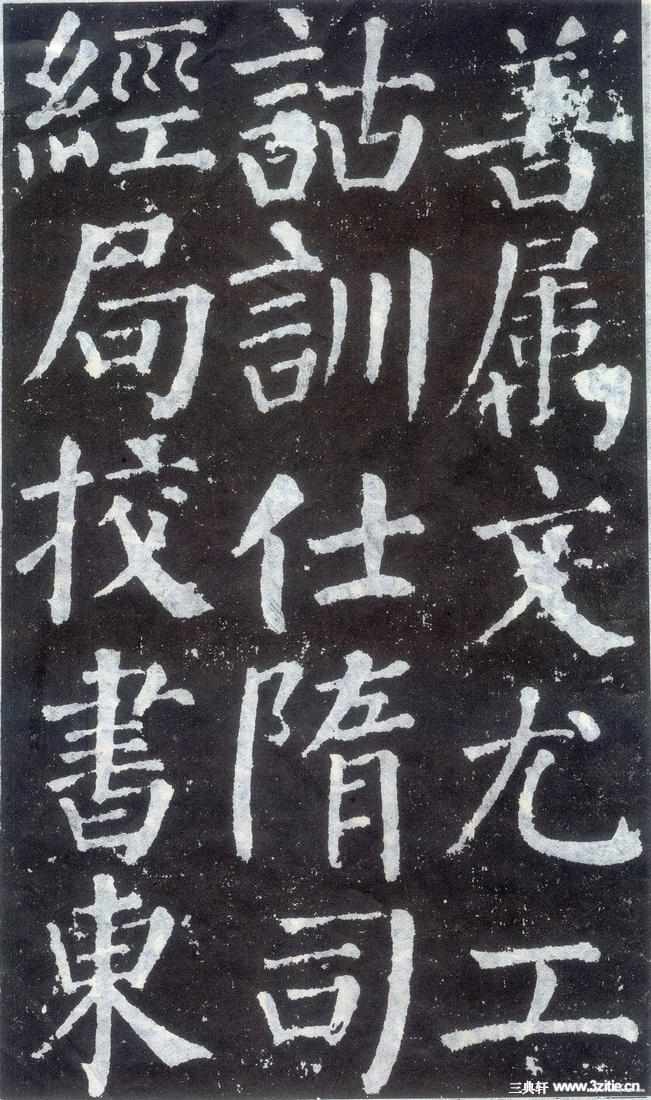 善属文尤工
詁訓仕隋司
經局校書東
三典轩 www.3zitie.cn